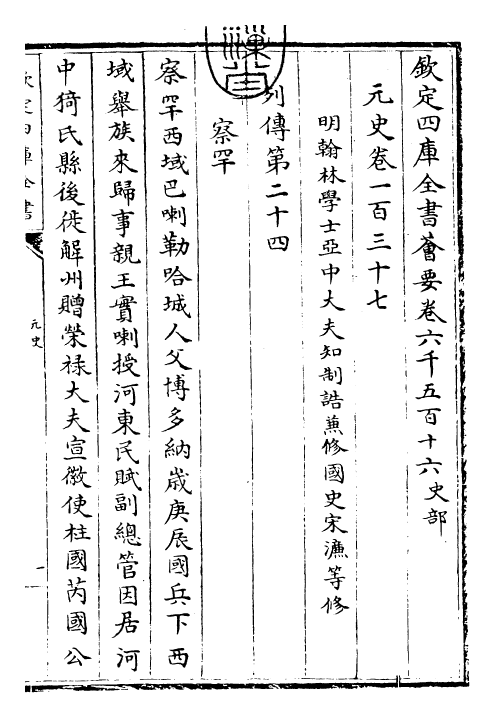 欽定四庫全書薈要卷六千五百十六史部
元史卷一百三十七
明翰林學士亞中大夫知制誥兼修國史宋濂等修
列傳第二十四
察罕
察罕西域巴喇勒哈城人父博多納歳庚辰國兵下西
域舉族來歸事親王實喇授河東民賦副總管因居河
中猗氏縣後徙解州贈榮禄大夫宣徽使柱國芮國公
欽定四庫全書
元史
一